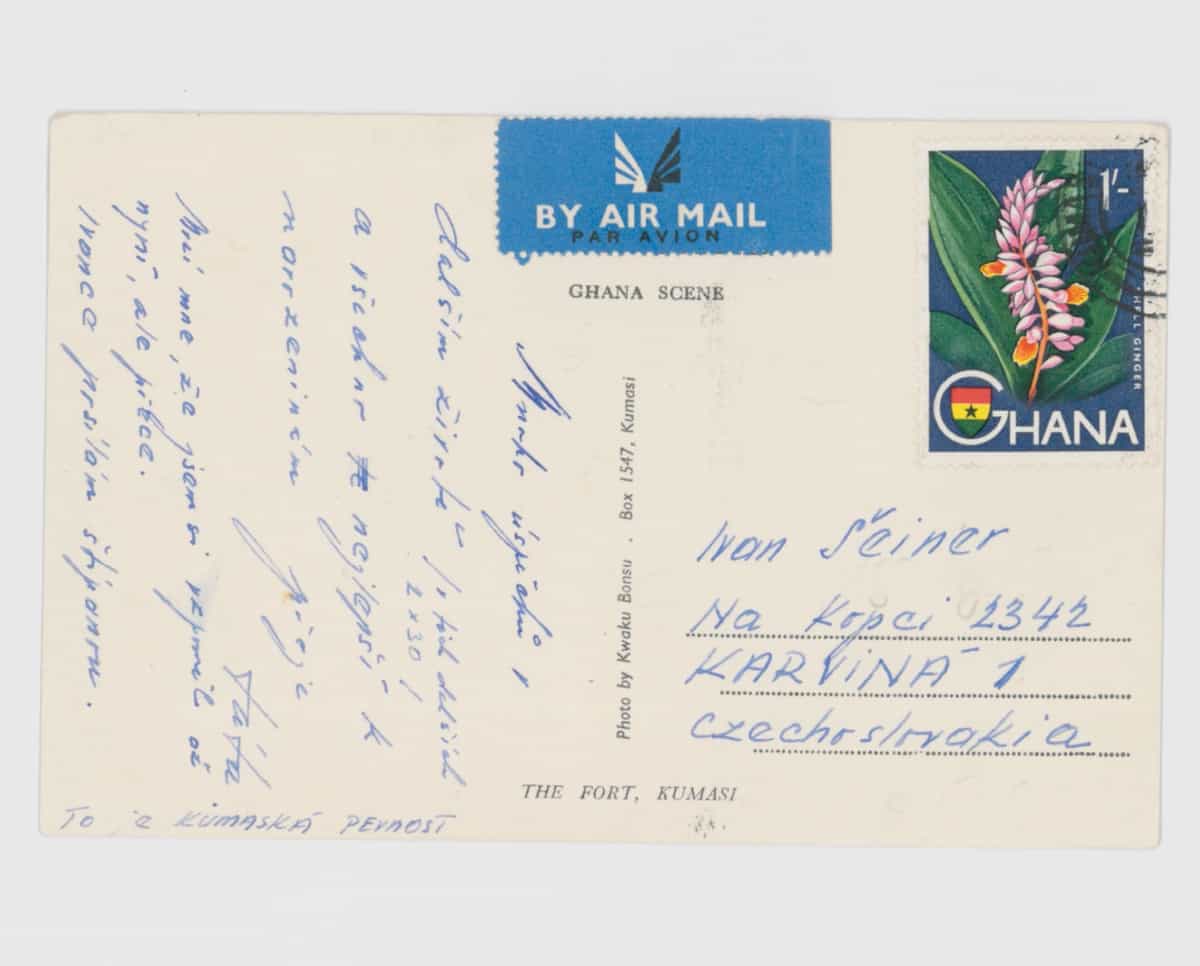 BY AIR MAIL
PAR AVION
GHANA SCENE
1/-
SHELL GINGER
GHANA
Mnoho úspěchů v
dalším životě
2 x 30!
a všechno nejlepší k
narozeninám
přeje
Táta
Mrzí mne, že jsem si vzpomněl až
nyní, ale přece.
Ivance posílám
To je KUMASKÁ PEVNOST
Photo by Kwaku Bonsu . Box 1547, Kumasi
Ivan Šeiner
Na Kopci 2342
KARVINÁ 1
Czechoslovakia
THE FORT, KUMASI